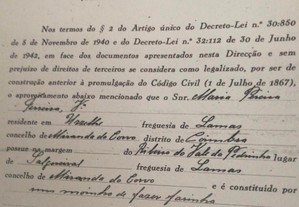 Nos termos do § 2 do Artigo único do Decreto-Lei n.º 30:850
de 5 de Novembro de 1940 e do Decreto-Lei n.º 32:112 de 30 de Junho
de 1942, em face dos documentos apresentados nesta Direcção e sem
prejuizo de direitos de terceiros se considera como legalizado, por ser de
construção anterior à promulgação do Código Civil (1 de Julho de 1867),
o aproveitamento abaixo mencionado que o Snr. Mario Pereira
residente em freguesia de Lamas
concelho de Miranda do Corvo distrito de Coimbra
possue na margem do Ribeiro do Vale da Pedrinha lugar
de freguesia de Lamas
concelho de Miranda do Corvo e é constituido por
um moinho de fazer farinha